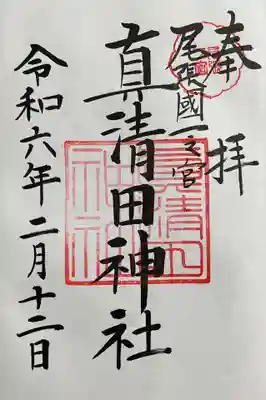 奉拝
尾張國一之宮
真清田神社
令和六年二月十二日
真清田
神社